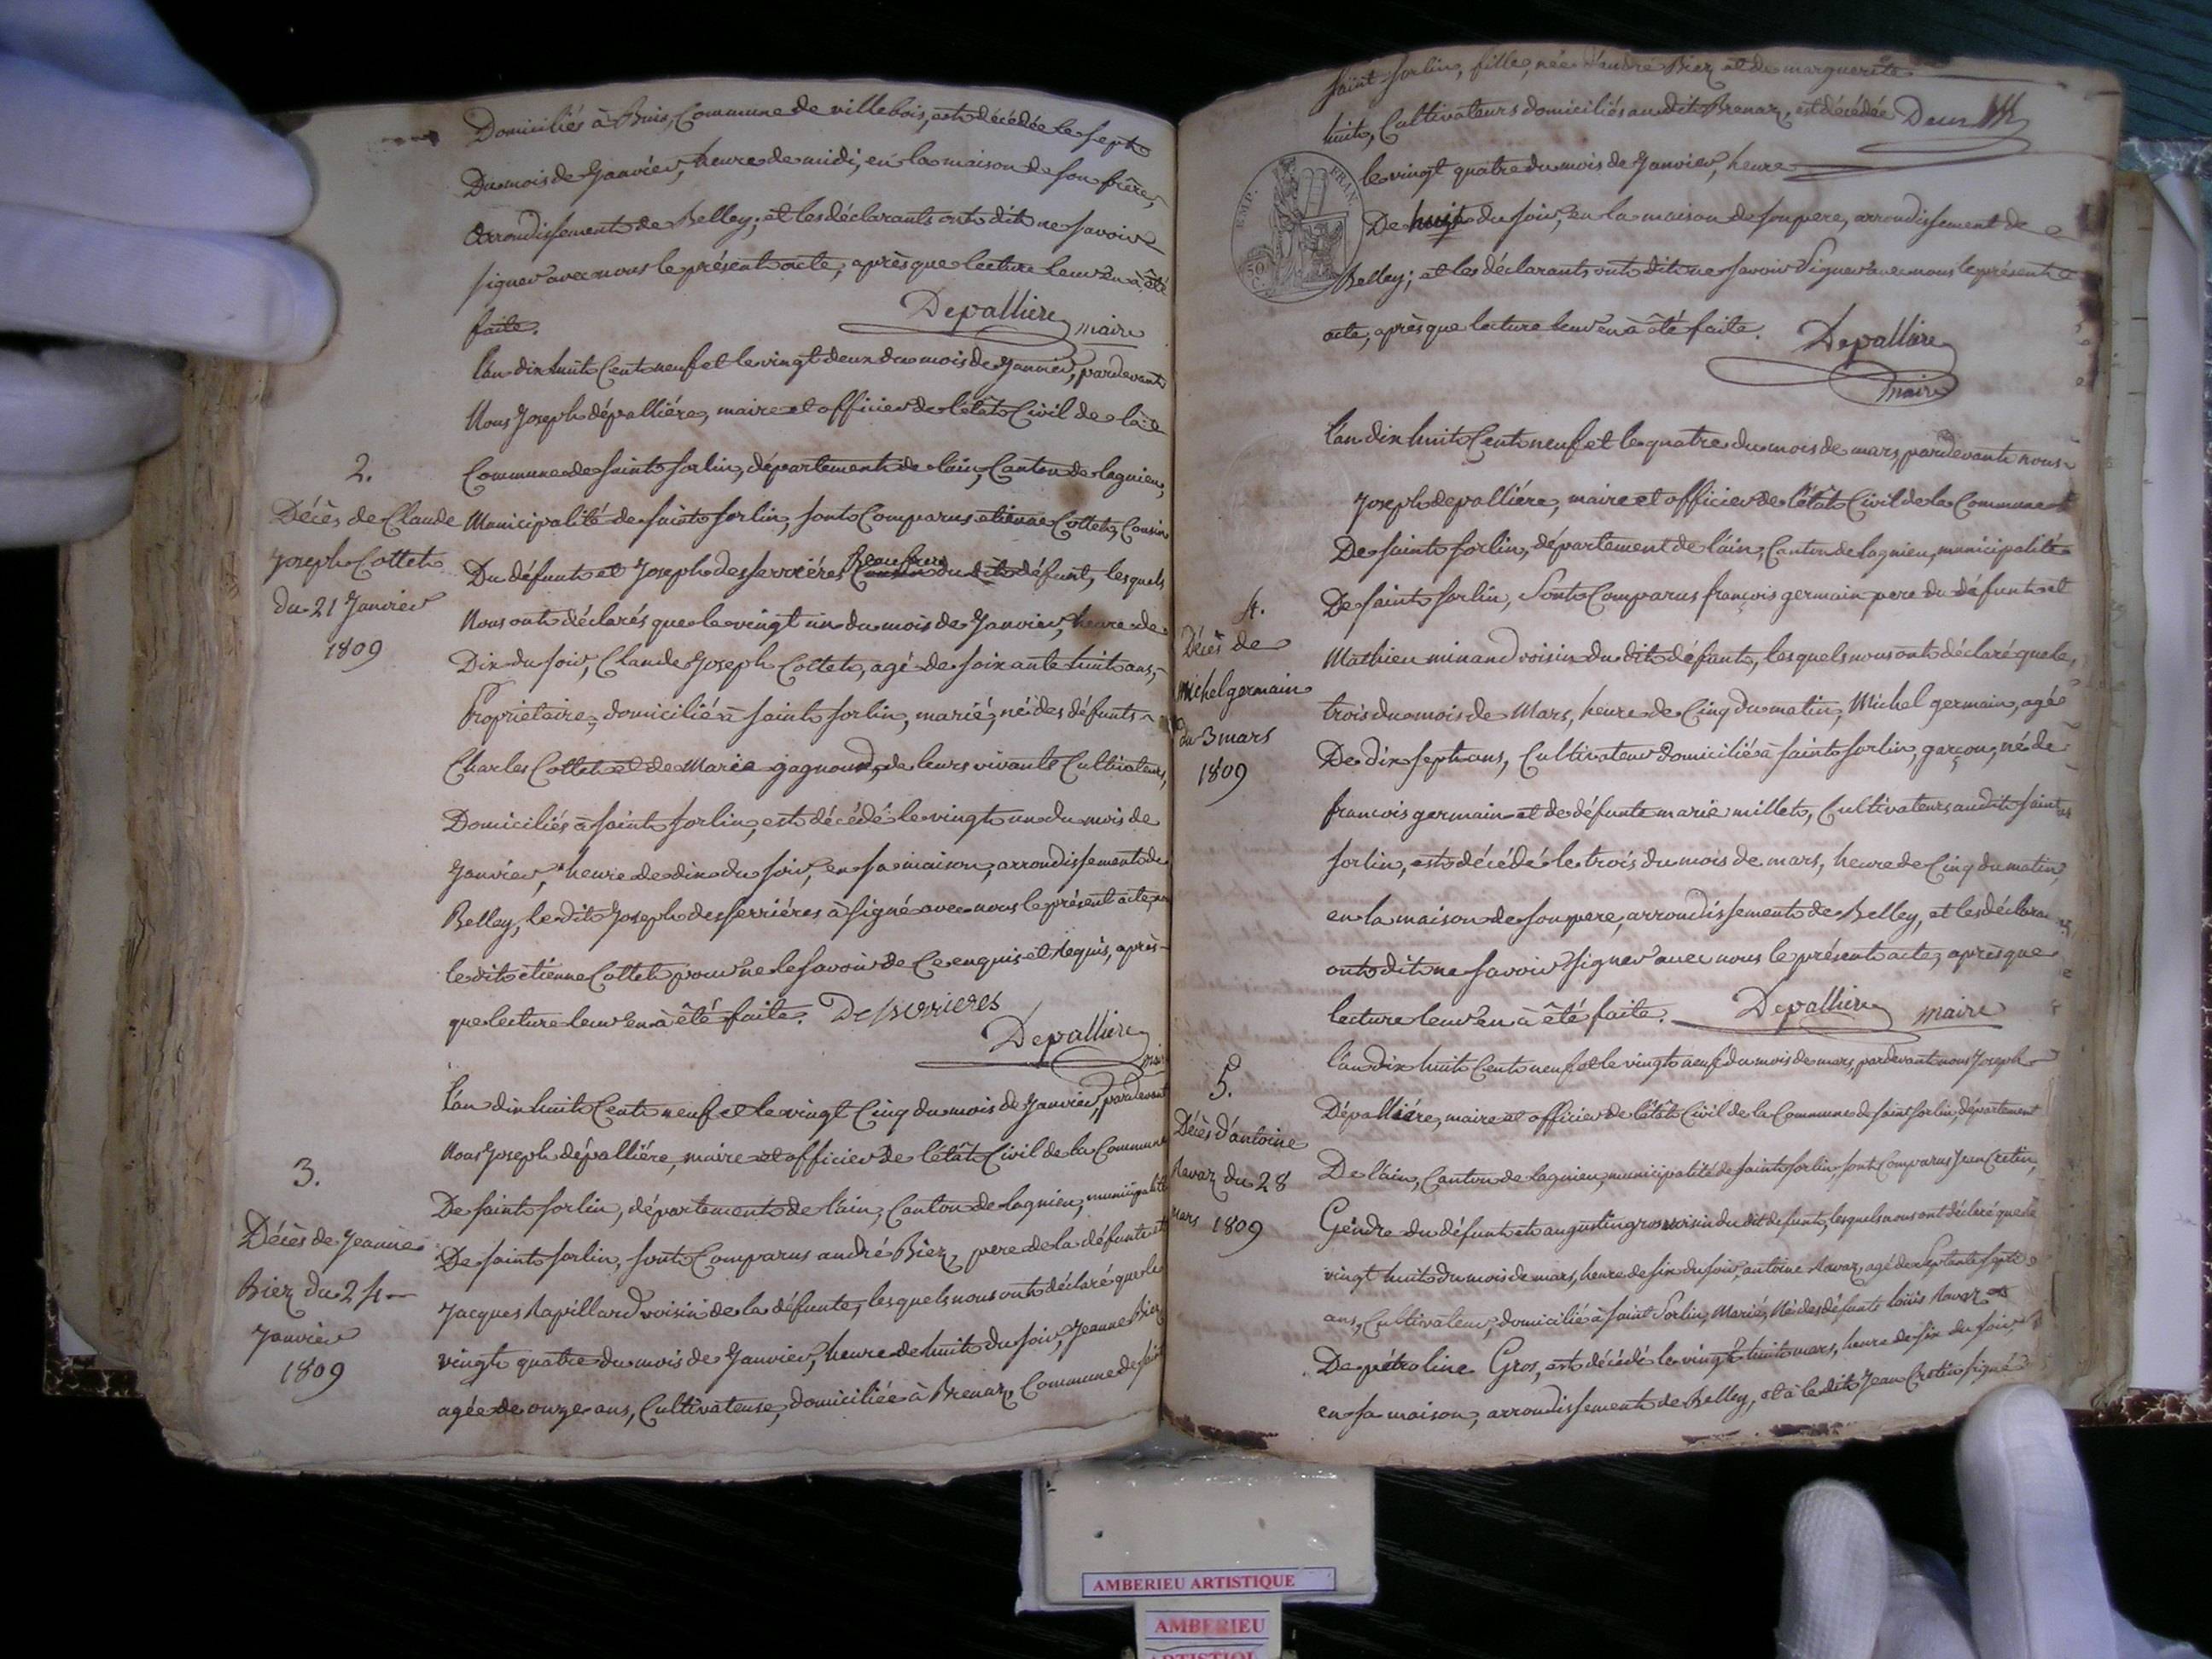 Domiciliés à Buis, Commune de villebois, est décédée le sept
Du mois de Janvier, heure de midi, en la maison de son frère,
Arrondissement de Belley; et les déclarants ont dit ne savoir
signer avec nous le présent acte, après que lecture leur en à été
faite.
Depalliere maire
l'an dix huit Cent neuf et le vingt deux du mois de Janvier, pardevant
Nous Joseph dépalliére, maire et officier de l'êtât Civil de la
2.
Commune de saint sorlin, département de l'ain, Canton de lagnieu,
Décès de Claude
Joseph Cottet
du 21 Janvier
1809
Municipalité de saint sorlin, sont Comparus etienne Cottet, Cousin
Beaufrere
Du défunt et Joseph desserriéres Cousin du dit défunt, lesquels
Nous ont déclarés que le vingt un du mois de Janvier, heure de
Dix du soir, Claude Joseph Cottet, agé de soixante huit ans,
Proprietaire, domicilié à saint sorlin, marié, né des défunts
Charles Cottet et de Marie gagnoud, de leurs vivants Cultivateurs,
Domiciliés à saint sorlin, est décédé le vingt un du mois de
Janvier, heure de dix du soir, en sa maison, arrondissement de
Belley, le dit Joseph desserriéres à signé avec nous le présent acte,
le dit etienne Cottet pour ne le savoir de Ce enquis et requis, après
que lecture leur en à êté faite. Desserrieres
Depalliere
l'an dix huit Cent neuf et le vingt Cinq du mois de Janvier, pardevant
Nous Joseph dépalliére, maire et officier de l'êtât Civil de la Commune
3.
De saint sorlin, département de l'ain, Canton de lagnieu, municipalité
Décès de Jeanne
Biez du 24
Janvier
1809
De saint sorlin, sont Comparus andré Biez, pere de la défunte et
Jacques Rapillard voisin de la défunte, lesquels nous ont déclaré que le
vingt quatre du mois de Janvier, heure de huit du soir, Jeanne Biez
agée de onze ans, Cultivateuse, domiciliée à Brenaz, Commune de saint
saint sorlin, fille, née d'andré Biez et de marguerite
huit, Cultivateurs domiciliés au dit Brenaz, est décédée Deux
le vingt quatre du mois de Janvier, heure
EMP. FRAN.
50 C.
De huit du soir, en la maison de son pere, arrondissement de
Belley; et les déclarants ont dit ne savoir signer avec nous le présent
acte, après que lecture leur en à été faite. Depalliere
maire
l'an dix huit Cent neuf et le quatre du mois de mars, pardevant nous
Joseph depalliére, maire et officier de l'êtât Civil de la Commune
De saint sorlin, département de l'ain, Canton de lagnieu, municipalité
4.
Décès de
michel germain
du 3 mars
1809
De saint sorlin, Sont Comparus françois germain pere du défunt et
Mathieu minand voisin du dit défunt, lesquels nous ont déclaré que le
trois du mois de Mars, heure de Cinq du matin, Michel germain, agé
De dix sept ans, Cultivateur domicilié à saint sorlin, garçon, né de
francois germain et de défunte marie millet, Cultivateurs au dit saint
sorlin, est décédé le trois du mois de mars, heure de Cinq du matin,
en la maison de son pere, arrondissement de Belley, et les déclarants
ont dit ne savoir signer avec nous le présent acte, après que
lecture leur en à êté faite. Depalliere maire
5.
Décès d'antoine
Ravaz du 28
mars 1809
l'an dix huit Cent neuf et le vingt neuf du mois de mars, pardevant nous Joseph
Dépalliére, maire et officier de l'êtât Civil de la Commune de saint sorlin, département
De l'ain, Canton de lagnieu, municipalité de saint sorlin, sont Comparus Jean Cretin,
Gendre du défunt et augustin gros voisin du dit défunt, lesquels nous ont déclaré que le
vingt huit du mois de mars, heure de six du soir, antoine Ravaz, agé de Septante sept
ans, Cultivateur, domicilié à saint Sorlin, Marié, Né des défunts loüis Ravaz et
De pétroline Gros, est décédé le vingt huit mars, heure de six du soir,
en sa maison, arrondissement de Belley, et à le dit Jean Cretin signé
AMBERIEU ARTISTIQUE
AMBERIEU